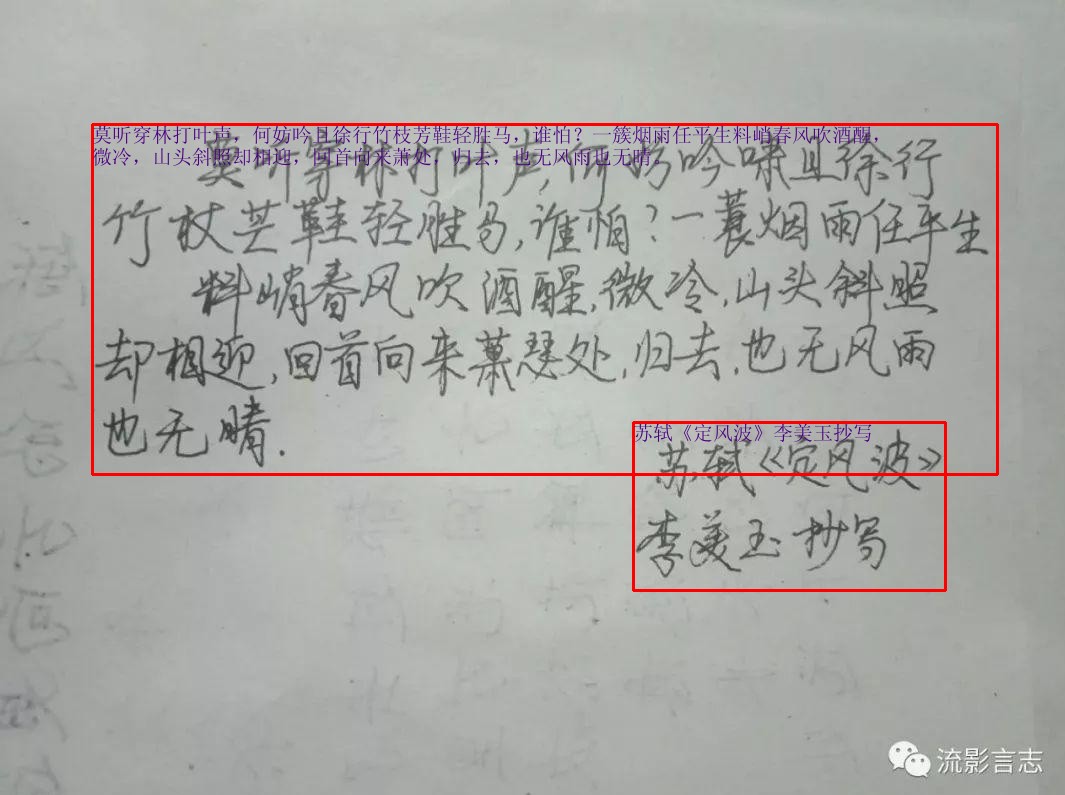 莫听穿林打叶声，何妨吟且徐行竹枝芳鞋轻胜马，谁怕？一簇烟雨任平生料峭春风吹酒醒，
微冷，山头斜照却相迎，回首向来萧处，归去，也无风雨也无晴。
莫听穿林打叶声,何妨吟啸且徐行
竹杖芒鞋轻胜马,谁怕?一蓑烟雨任平生
料峭春风吹酒醒,微冷,山头斜照
却相迎,回首向来萧瑟处,归去,也无风雨
也无晴.
苏轼《定风波》李美玉抄写
苏轼《定风波》
李美玉抄写
流影言志